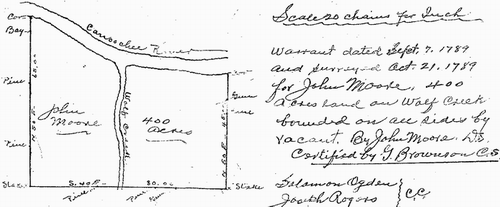 Scale 20 chains per Inch
Canoochee River
Bay
Pine
John
Moore
Wolf Creek
400
acres
Gum
Pine
Stake
S. 40 E.
80.00
Stake
Pine
Warrant dated Sept. 7. 1789
and surveyed Oct. 21, 1789
for John Moore, 400
acres land on Wolf Creek
bounded on all sides by
vacant. By John Moore. D.S.
Certified by G. Brownson C.S
Solomon Ogden
Joseph Rogers
C.C.